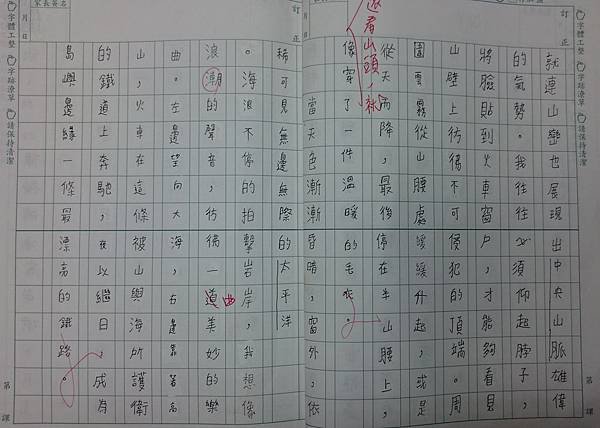 訂正
字體工整 字跡潦草 請保持清潔
就連山巒也展現出中央山脈雄偉
的氣勢。我往往必須仰起脖子，
將臉貼到火車窗戶，才能夠看見
山壁上彷彿不可侵犯的頂端。周
圍雲霧從山腰處緩緩升起，或是
從天而降，最後停在半山腰上，
遠看山頭，就
像穿了一件溫暖的毛衣。
當天色漸漸昏暗，窗外，依
第 課
月 日
訂正
稀可見無邊無際的太平洋
。海浪不停的拍擊岩岸，我想像
浪潮的聲音，彷彿一道美妙的樂
曲
曲。左邊望向大海，右邊靠著高
山，火車在這條被山與海所護衛
的鐵道上奔馳，夜以繼日，成為
島嶼邊緣一條最漂亮的鐵路。
家長簽名
月 日
字體工整 字跡潦草 請保持清潔
第 課